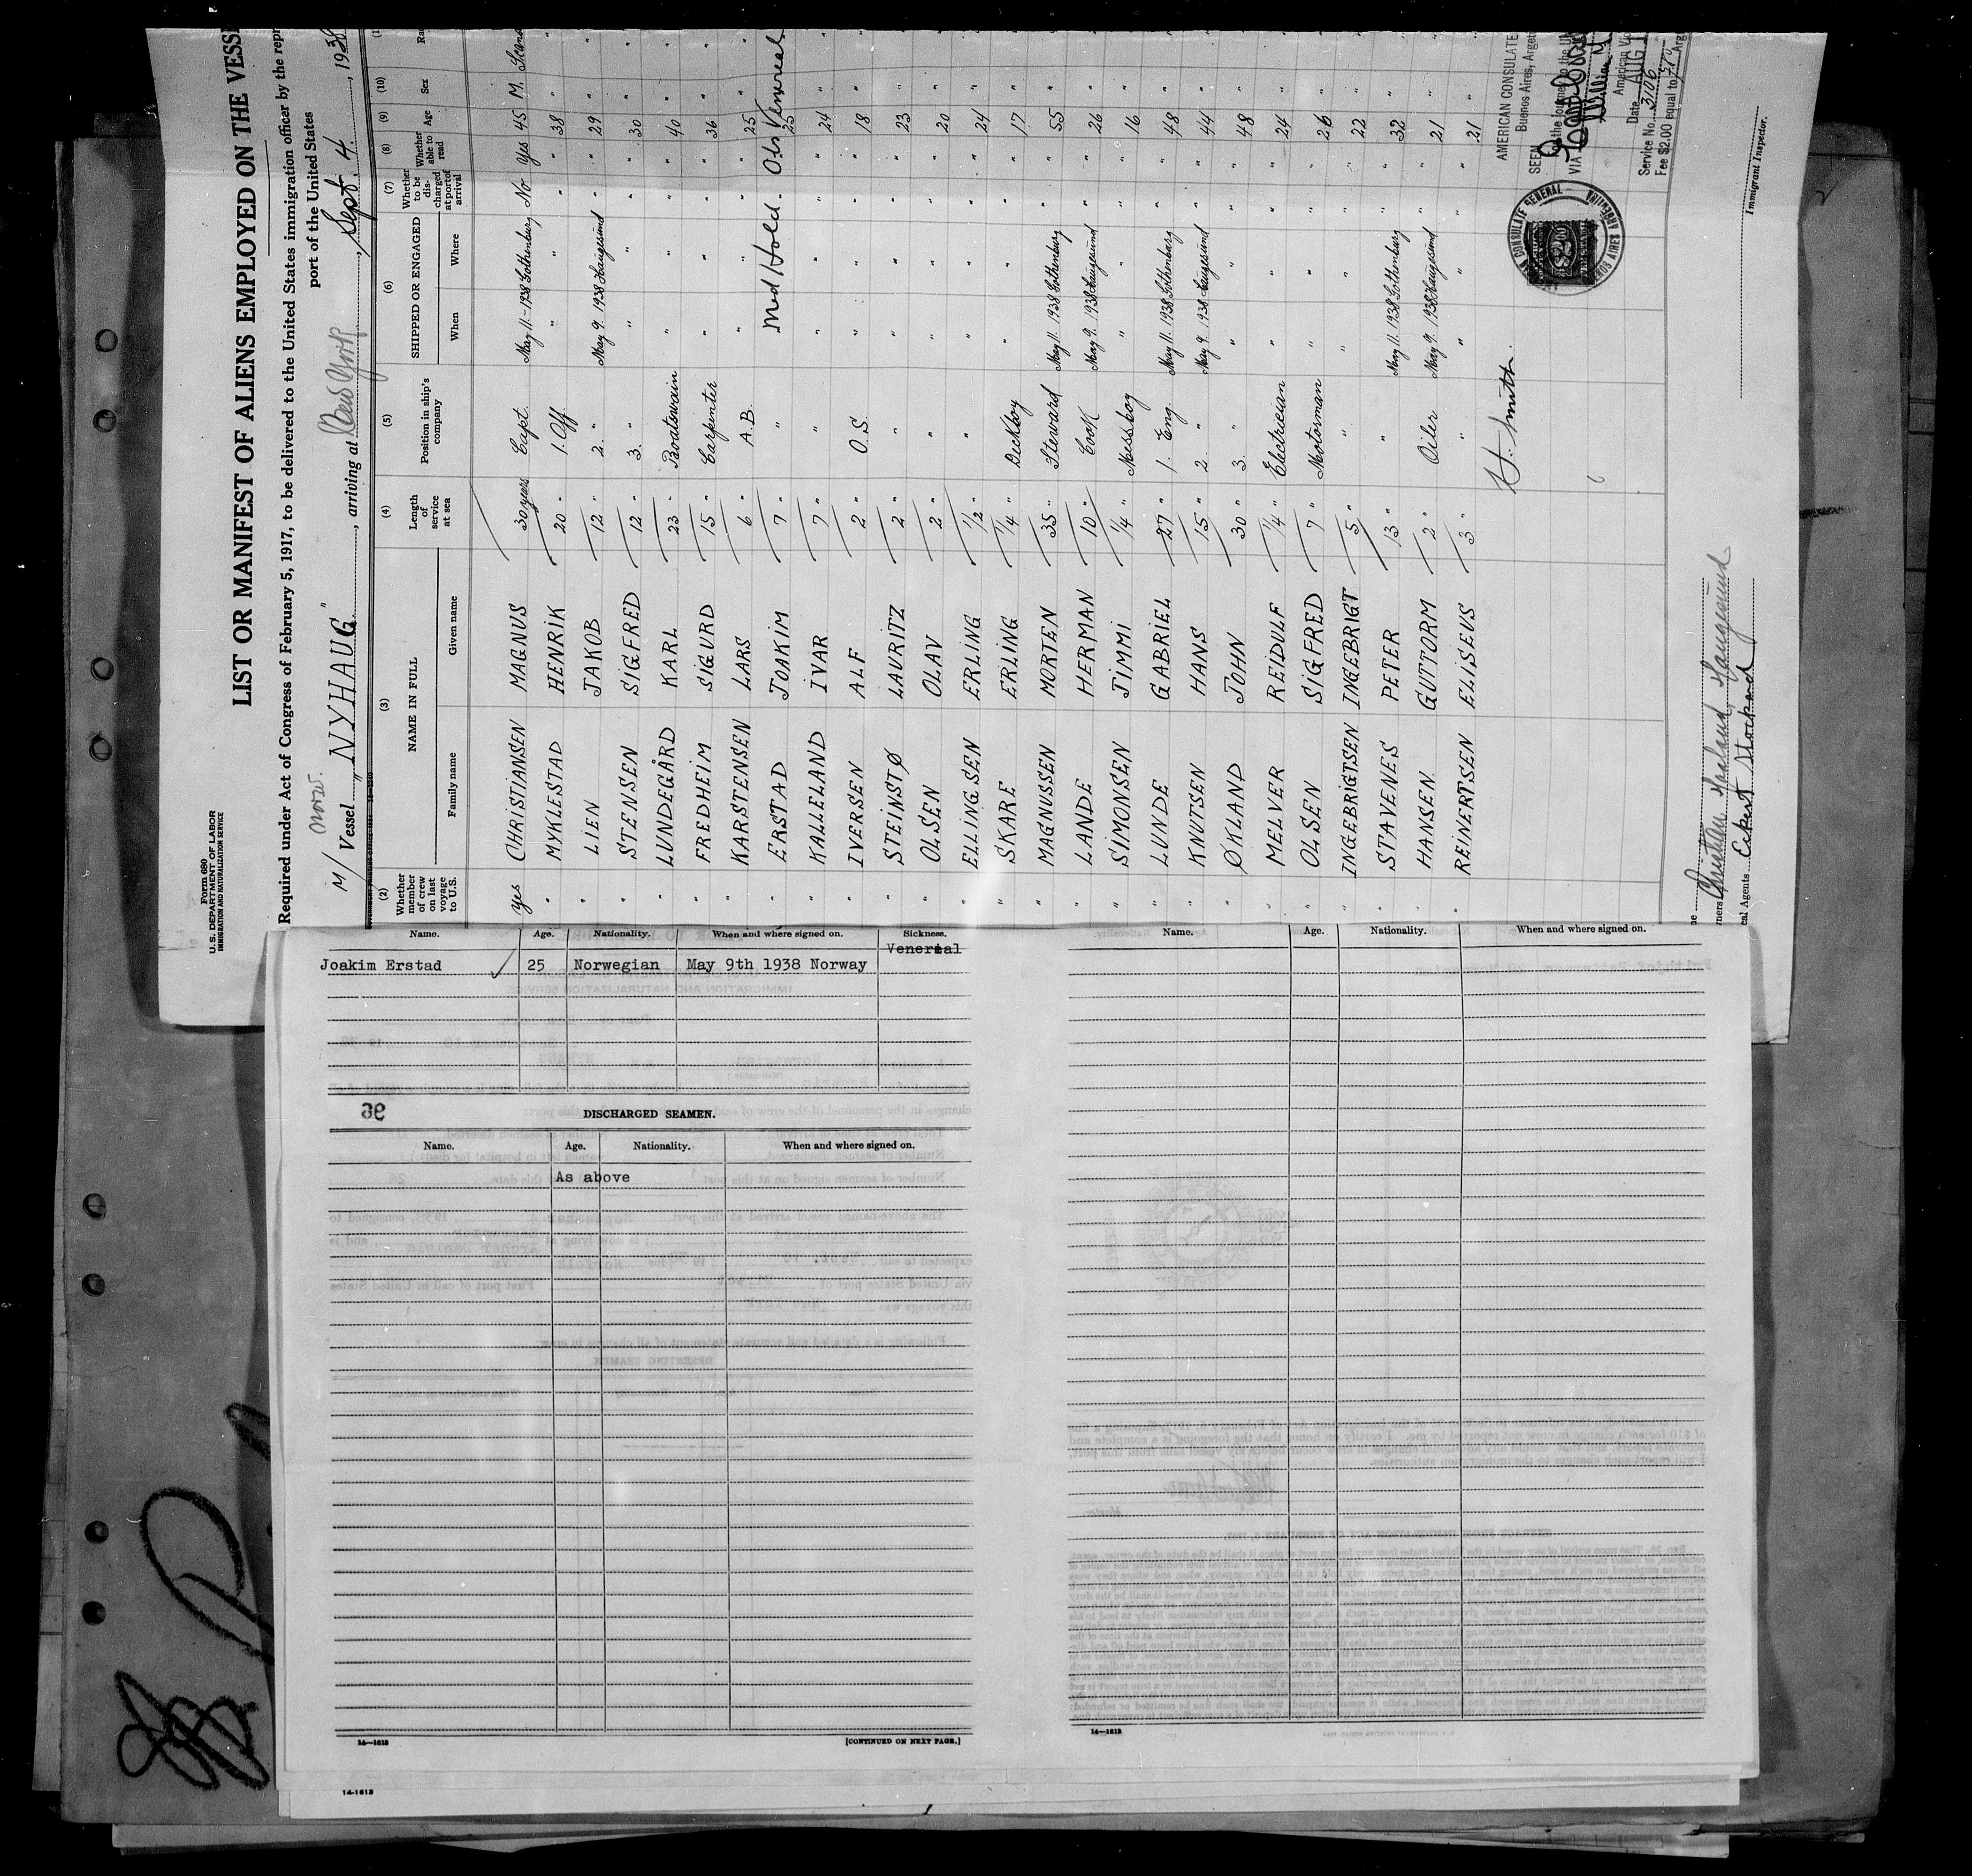 Form 680
U.S. DEPARTMENT OF LABOR
IMMIGRATION AND NATURALIZATION SERVICE
LIST OR MANIFEST OF ALIENS EMPLOYED ON THE VESS
Required under Act of Congress of February 5, 1917, to be delivered to the United States immigration officer by the repr
port of the United States
Norw.
M/ Vessel "NYHAUG", arriving at New York, Sept. 4, 1938
(2) (3) (4) (5) (6) (7) (8) (9) (10)
Whether member of crew on last voyage to U.S. NAME IN FULL Family name Given name Length of service at sea Position in ship's company SHIPPED OR ENGAGED When Where Whether to be discharged at port of arrival Whether able to read Age Sex Ra
Yes CHRISTIANSEN MAGNUS 30 years Capt. May 11.-1938 Gothenburg No Yes 45 M. Scand
" MYKLESTAD HENRIK 20 " 1. Off. " " " " 38 " "
" LIEN JAKOB 12 " 2. " May 9. 1938 Haugesund " " 29 " "
" STENSEN SIGFRED 12 " 3. " " " " " 30 " "
" LUNDEGÅRD KARL 23 " Boatswain " " " " 40 " "
" FREDHEIM SIGURD 15 " Carpenter " " " " 36 " "
" KARSTENSEN LARS 6 " A.B. " " " " 25 " "
" ERSTAD JOAKIM 7 " " Med Hold. Obs Venereal 25
" KALLELAND IVAR 7 " " " " " " 24 " "
" IVERSEN ALF 2 " O.S. " " " " 18 " "
" STEINSTØ LAURITZ 2 " " " " " " 23 " "
" OLSEN OLAV 2 " " " " " " 20 " "
" ELLINGSEN ERLING 1/2 " " " " " " 24 " "
" SKARE ERLING 1/4 " Deckboy " " " " 17 " "
" MAGNUSSEN MORTEN 35 " Steward May 11. 1938 Gothenburg " " 55 " "
" LANDE HERMAN 10 " Cook May 9. 1938 Haugesund " " 26 " "
" SIMONSEN JIMMI 1/4 " Messboy " " " " 16 " "
" LUNDE GABRIEL 27 " 1. Eng. May 11. 1938 Gothenburg " " 48 " "
" KNUTSEN HANS 15 " 2. " May 9. 1938 Haugesund " " 44 " "
" ØKLAND JOHN 30 " 3. " " " " " 48 " "
" MELVER REIDULF 1/4 " Electrician " " " " 24 " "
" OLSEN SIGFRED 7 " Motorman " " " " 26 " "
" INGEBRIGTSEN INGEBRIGT 5 " " " " " " 22 " "
" STAVENES PETER 13 " " May 11. 1938 Gothenburg " " 32 " "
" HANSEN GUTTORM 2 " Oiler May 9. 1938 Haugesund " " 21 " "
" REINERTSEN ELISEUS 3 " " " " " " 21 " "
H. Smith
AMERICAN CONSULATE
Buenos Aires, Argent
SEEN
the journey to the UN
VIA
American Vi
Date AUG 1
Service No. 3106
Fee $2.00 equal to Arg
CONSULATE GENERAL
BUENOS AIRES
ners Christian Haaland, Haugesund
cal Agents Eckert Stockard
Immigrant Inspector.
Name. Age. Nationality. When and where signed on. Sickness.
Joakim Erstad 25 Norwegian May 9th 1938 Norway Venereal
96
DISCHARGED SEAMEN.
Name. Age. Nationality. When and where signed on.
As above
14—1613
[CONTINUED ON NEXT PAGE.]
14-1613
Name. Age. Nationality. When and where signed on.
14—1613